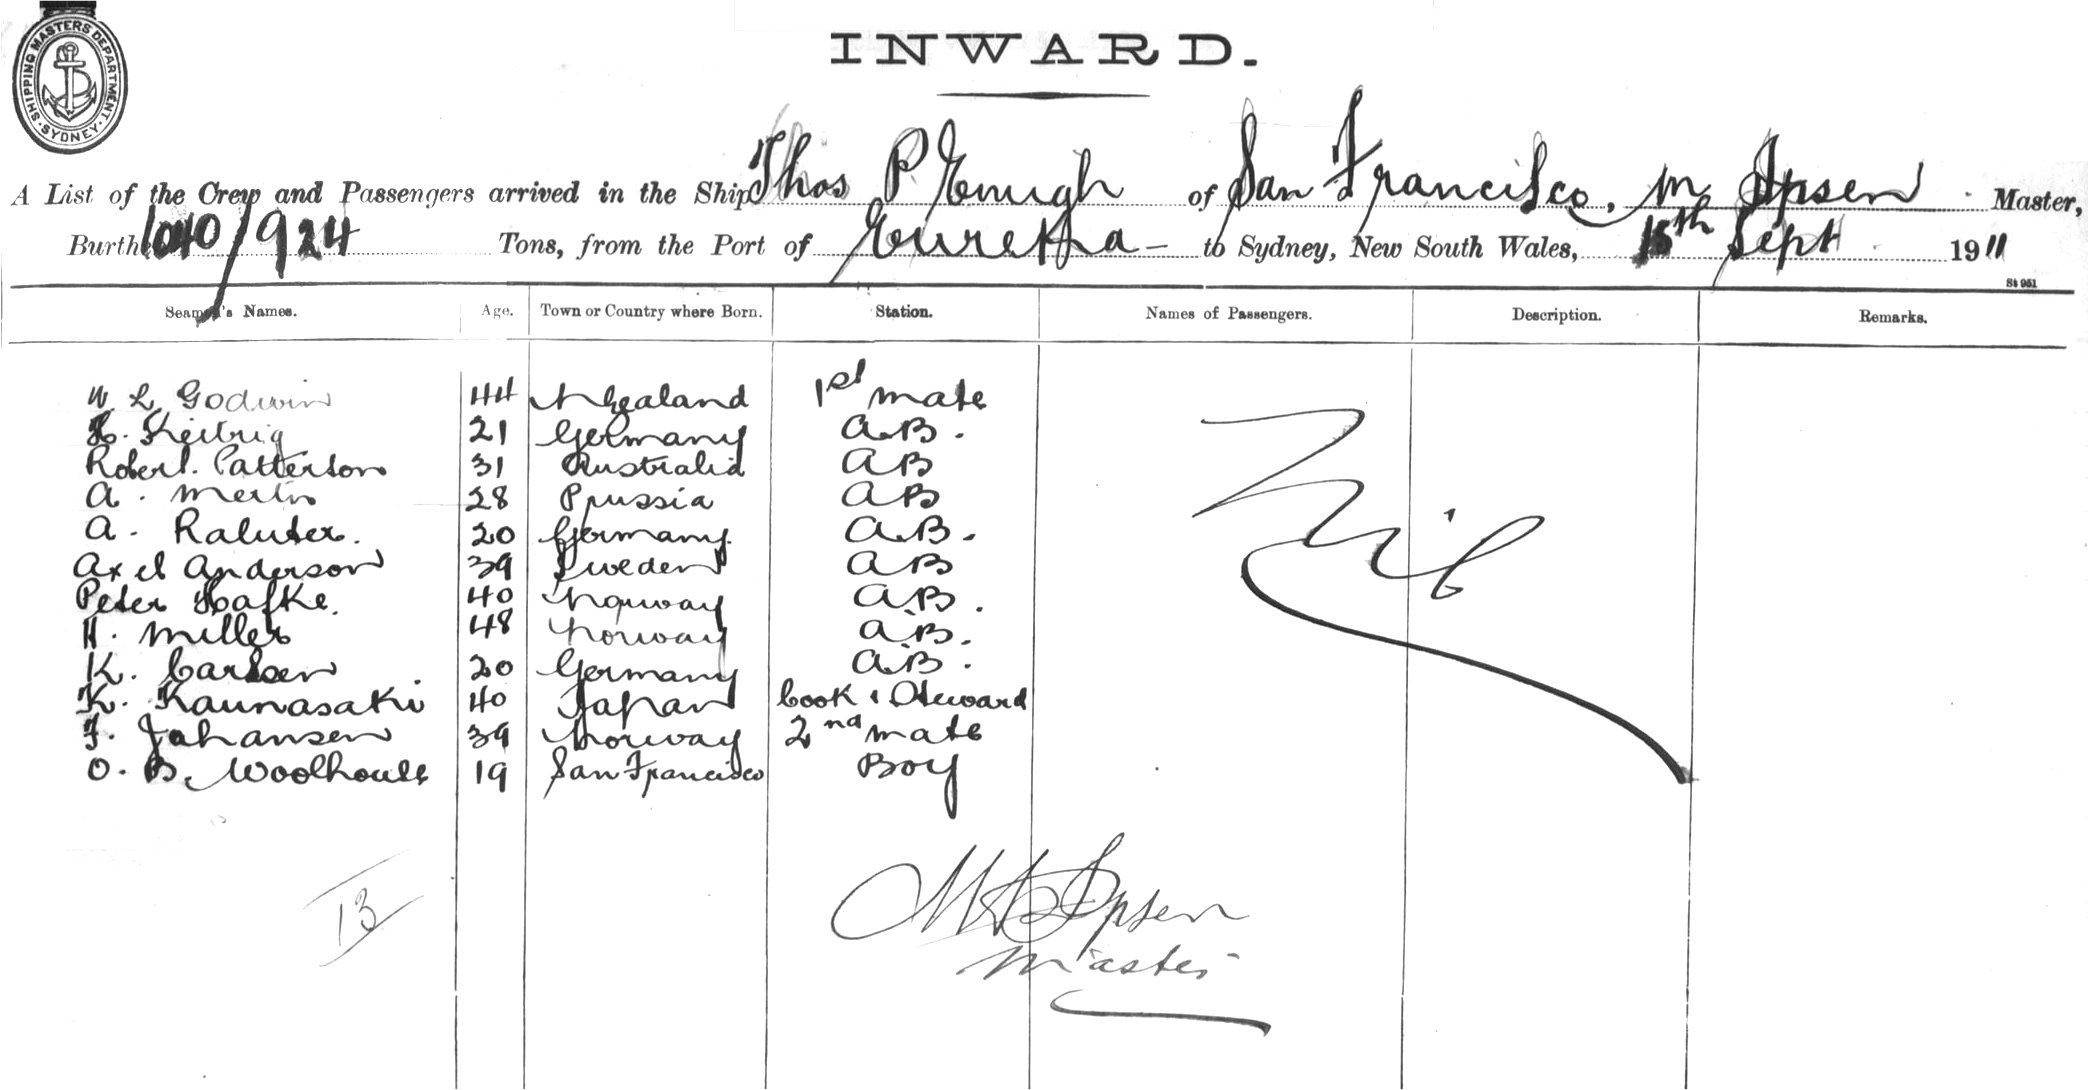 SHIPPING MASTERS DEPARTMENT. SYDNEY.
INWARD.
A List of the Crew and Passengers arrived in the Ship Thos P Emigh of San Francisco, M Ipsen Master,
Burthen 1040/924 Tons, from the Port of Eureka - to Sydney, New South Wales, 15th Sept 1911
St 951
Seamen's Names. Age. Town or Country where Born. Station. Names of Passengers. Description. Remarks.
W L Godwin 44 N Zealand 1st mate
21 Germany A.B.
Robert. Patterson 31 Australia AB
A. Mertin 28 Prussia AB
A. 20 Germany. A.B.
Axel Anderson 39 Sweden AB
Peter Hafke. 40 Norway A.B.
H. Miller 48 Norway A.B.
K. Carlsen 20 Germany A.B.
K. Kaunasaki 40 Japan Cook & Steward
F. Johansen 39 Norway 2nd mate
O. B. Woolhouse 19 San Francisco Boy
Nil
13
Ipsen
Master